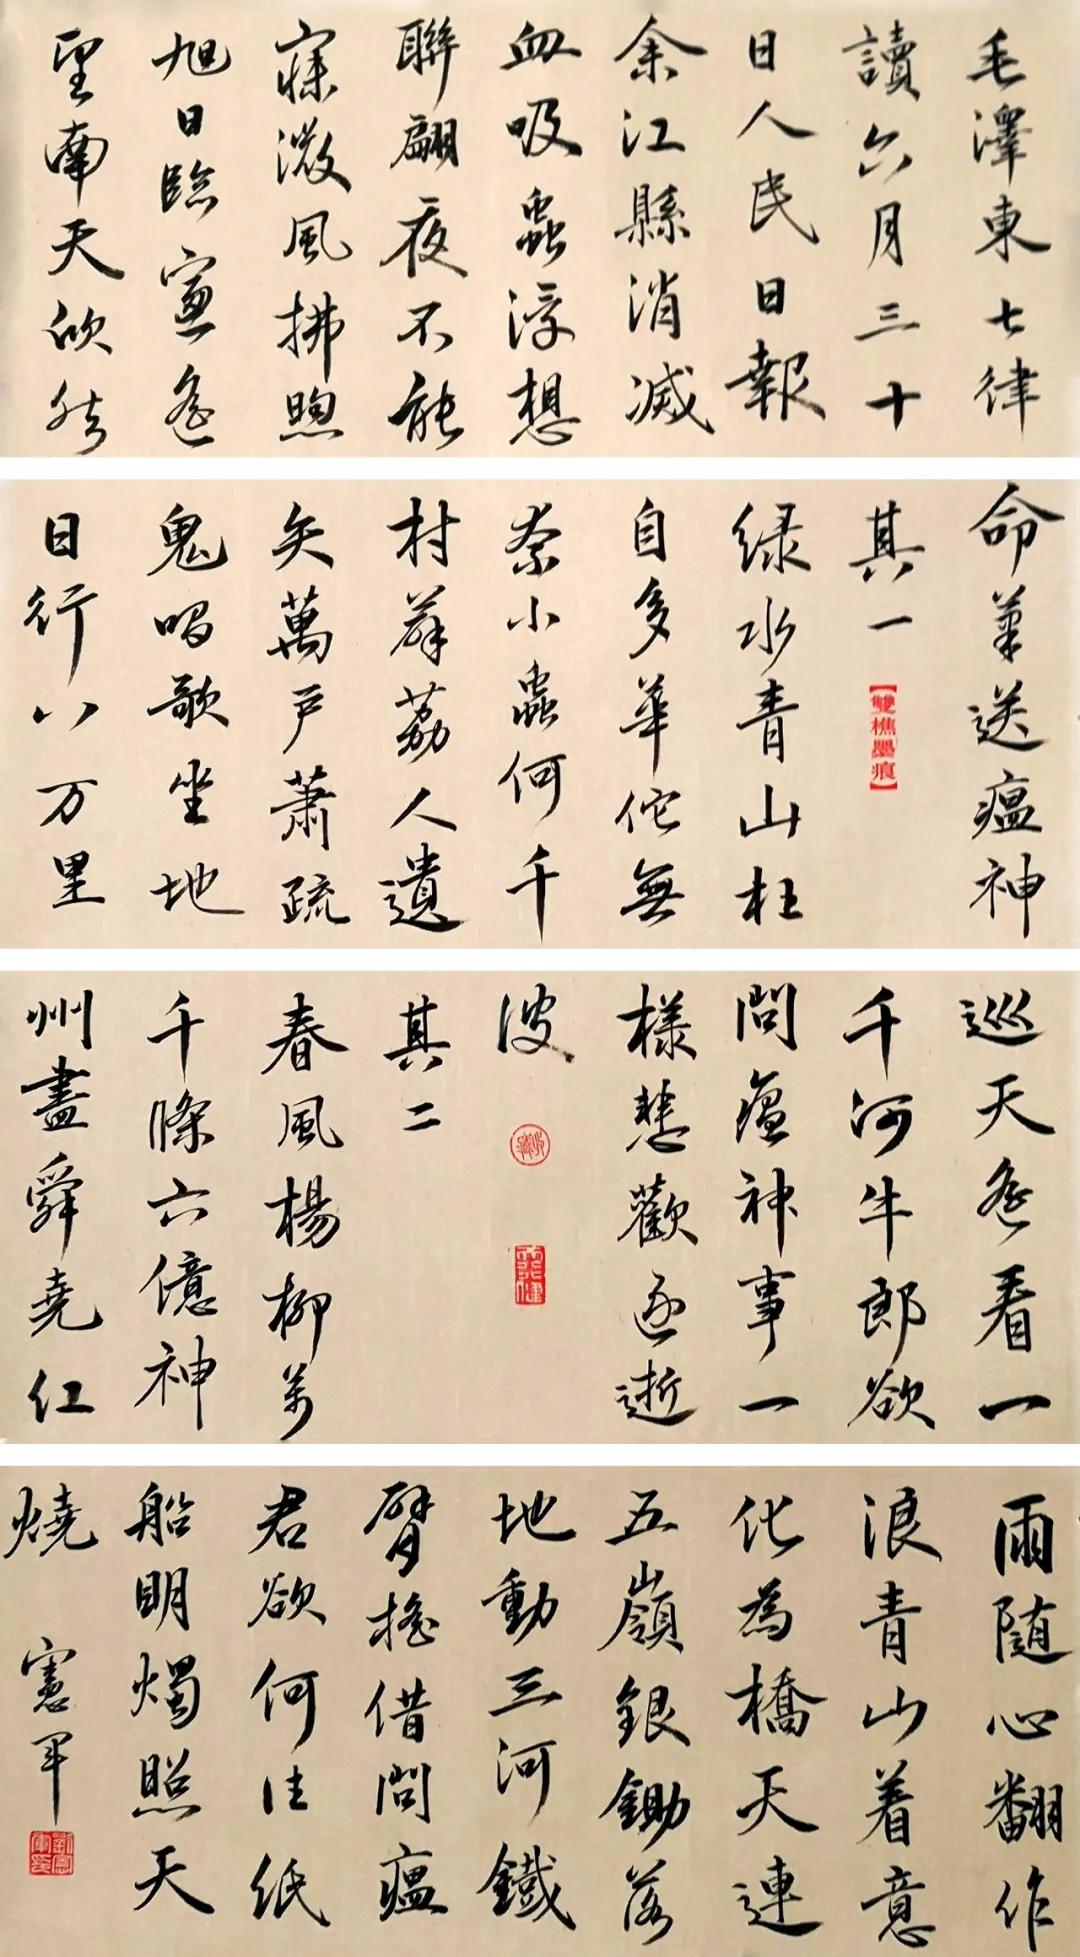 毛澤東七律
讀六月三十
日人民日報
余江縣消滅
血吸蟲浮想
聯翩夜不能
寐微風拂煦
旭日臨窗遙
望南天欣然
命筆送瘟神
其一
【雙樵墨痕】
绿水青山枉
自多華佗無
奈小蟲何千
村薜荔人遺
矢萬戶蕭疏
鬼唱歌坐地
日行八万里
巡天遙看一
千河牛郎欲
問瘟神事一
樣悲歡逐逝
波
其二
春風楊柳萬
千條六億神
州盡舜堯红
雨随心翻作
浪青山着意
化為橋天連
五嶺銀鋤落
地動三河鐵
臂搖借問瘟
君欲何往纸
船明燭照天
燒
憲軍